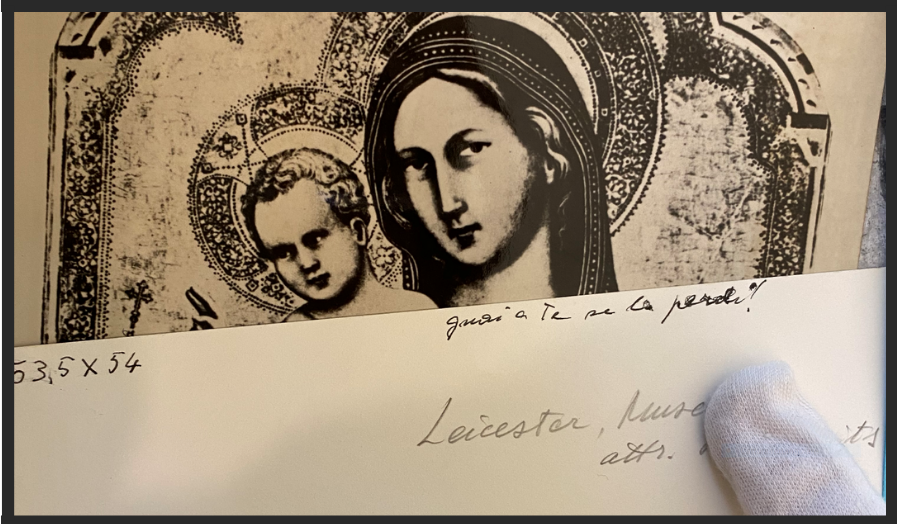 guai a te se lo perdi!
53,5 X 54
Leicester,
attr.